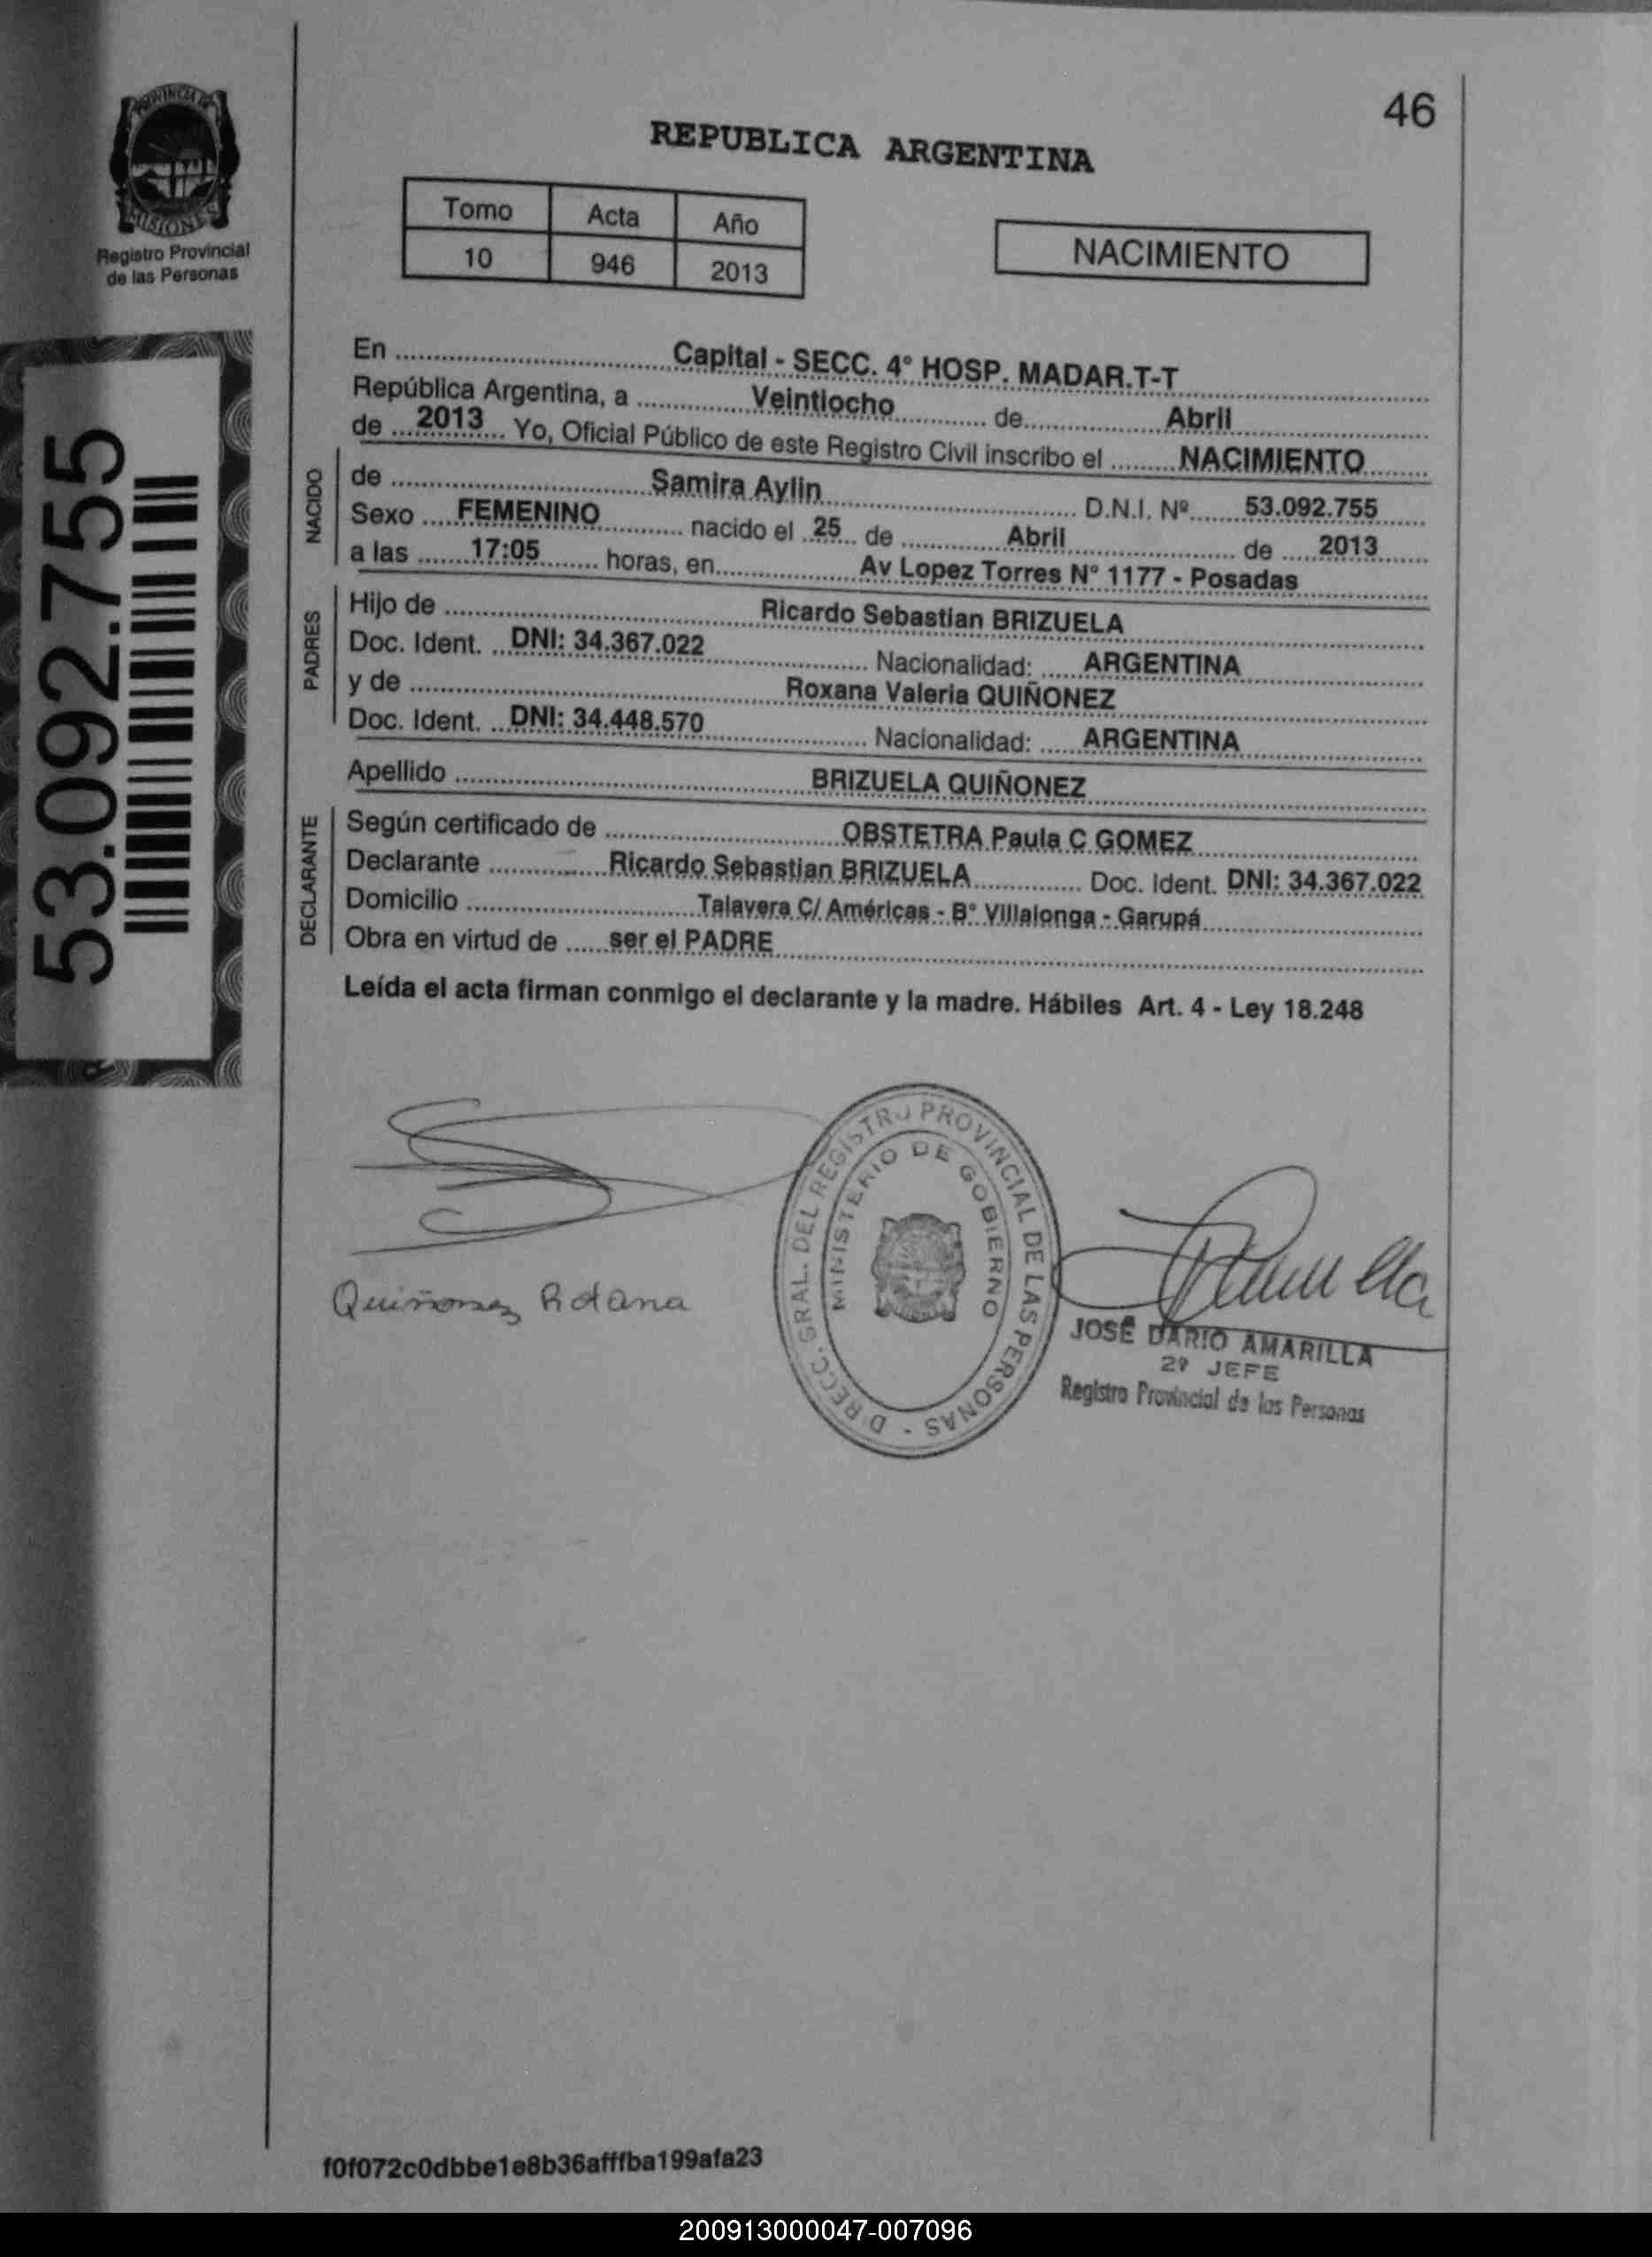 46
PROVINCIA DE
MISIONES
Registro Provincial
de las Personas
REPUBLICA ARGENTINA
Tomo Acta Año
10 946 2013
NACIMIENTO
53.092.755
En Capital - SECC. 4° HOSP. MADAR.T-T
República Argentina, a Veintiocho de Abril
de 2013 Yo, Oficial Público de este Registro Civil inscribo el NACIMIENTO
NACIDO
de Samira Aylin D.N.I. Nº 53.092.755
Sexo FEMENINO nacido el 25 de Abril de 2013
a las 17:05 horas, en Av Lopez Torres N° 1177 - Posadas
PADRES
Hijo de Ricardo Sebastian BRIZUELA
Doc. Ident. DNI: 34.367.022 Nacionalidad: ARGENTINA
y de Roxana Valeria QUIÑONEZ
Doc. Ident. DNI: 34.448.570 Nacionalidad: ARGENTINA
Apellido BRIZUELA QUIÑONEZ
DECLARANTE
Según certificado de OBSTETRA Paula C GOMEZ
Declarante Ricardo Sebastian BRIZUELA Doc. Ident. DNI: 34.367.022
Domicilio Talavera C/ Américas - B° Villalonga - Garupá
Obra en virtud de ser el PADRE
Leída el acta firman conmigo el declarante y la madre. Hábiles Art. 4 - Ley 18.248
DIRECC. GRAL. DEL REGISTRO PROVINCIAL DE LAS PERSONAS -
MINISTERIO DE GOBIERNO
Quiñonez Roxana
JOSÉ DARIO AMARILLA
2º JEFE
Registro Provincial de las Personas
f0f072c0dbbe1e8b36afffba199afa23
200913000047-007096